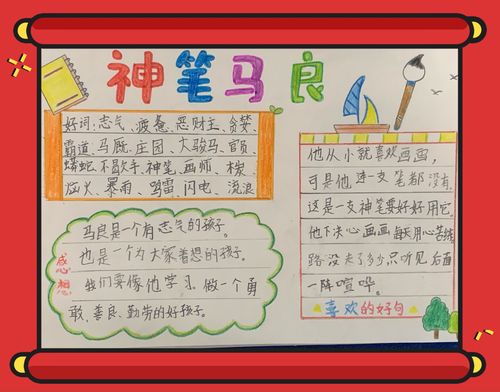 神笔马良
好词:志气、疲惫、恶财主、贪婪、
霸道、马厩、庄园、大骏马、官员、
蟒蛇、不敢、神笔、画师、
火、暴雨、鸣雷、闪电、流浪
感想
马良是一个有志气的孩子。
也是一个为大家着想的孩子。
我们要像他学习。做一个勇
敢、善良、勤劳的好孩子。
他从小就喜欢画画,
可是他连一支笔都没有,
这是一支神笔要好好用它。
他下决心画画每天用心苦练
路没走了多少只听见后面
一阵喧哗。
喜欢的好句